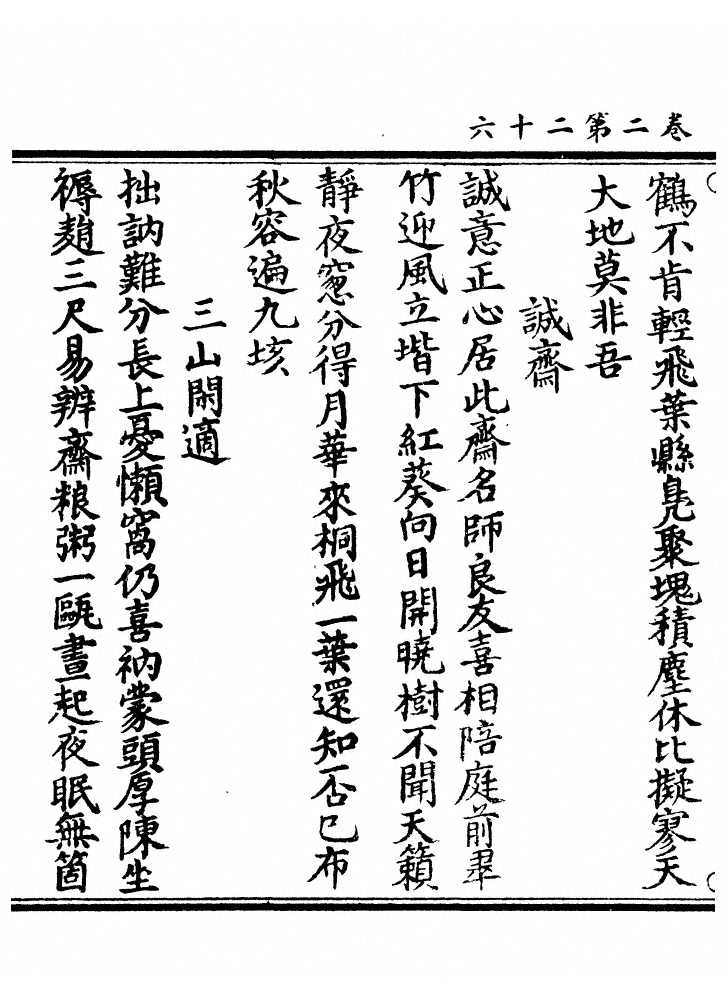 卷二第二十六
鶴不肯輕飛葉縣鳧聚塊積塵休比擬寥天
大地莫非吾
誠齋
誠意正心居此齋名師良友喜相陪庭前翠
竹迎風立堦下紅葵向日開曉樹不聞天籟
靜夜窓分得月華來桐飛一葉還知否已布
秋容遍九垓
三山閑適
拙訥難分長上憂懶窩仍喜衲蒙頭厚陳坐
褥趙三尺易辦齋粮粥一甌晝起夜眠無箇